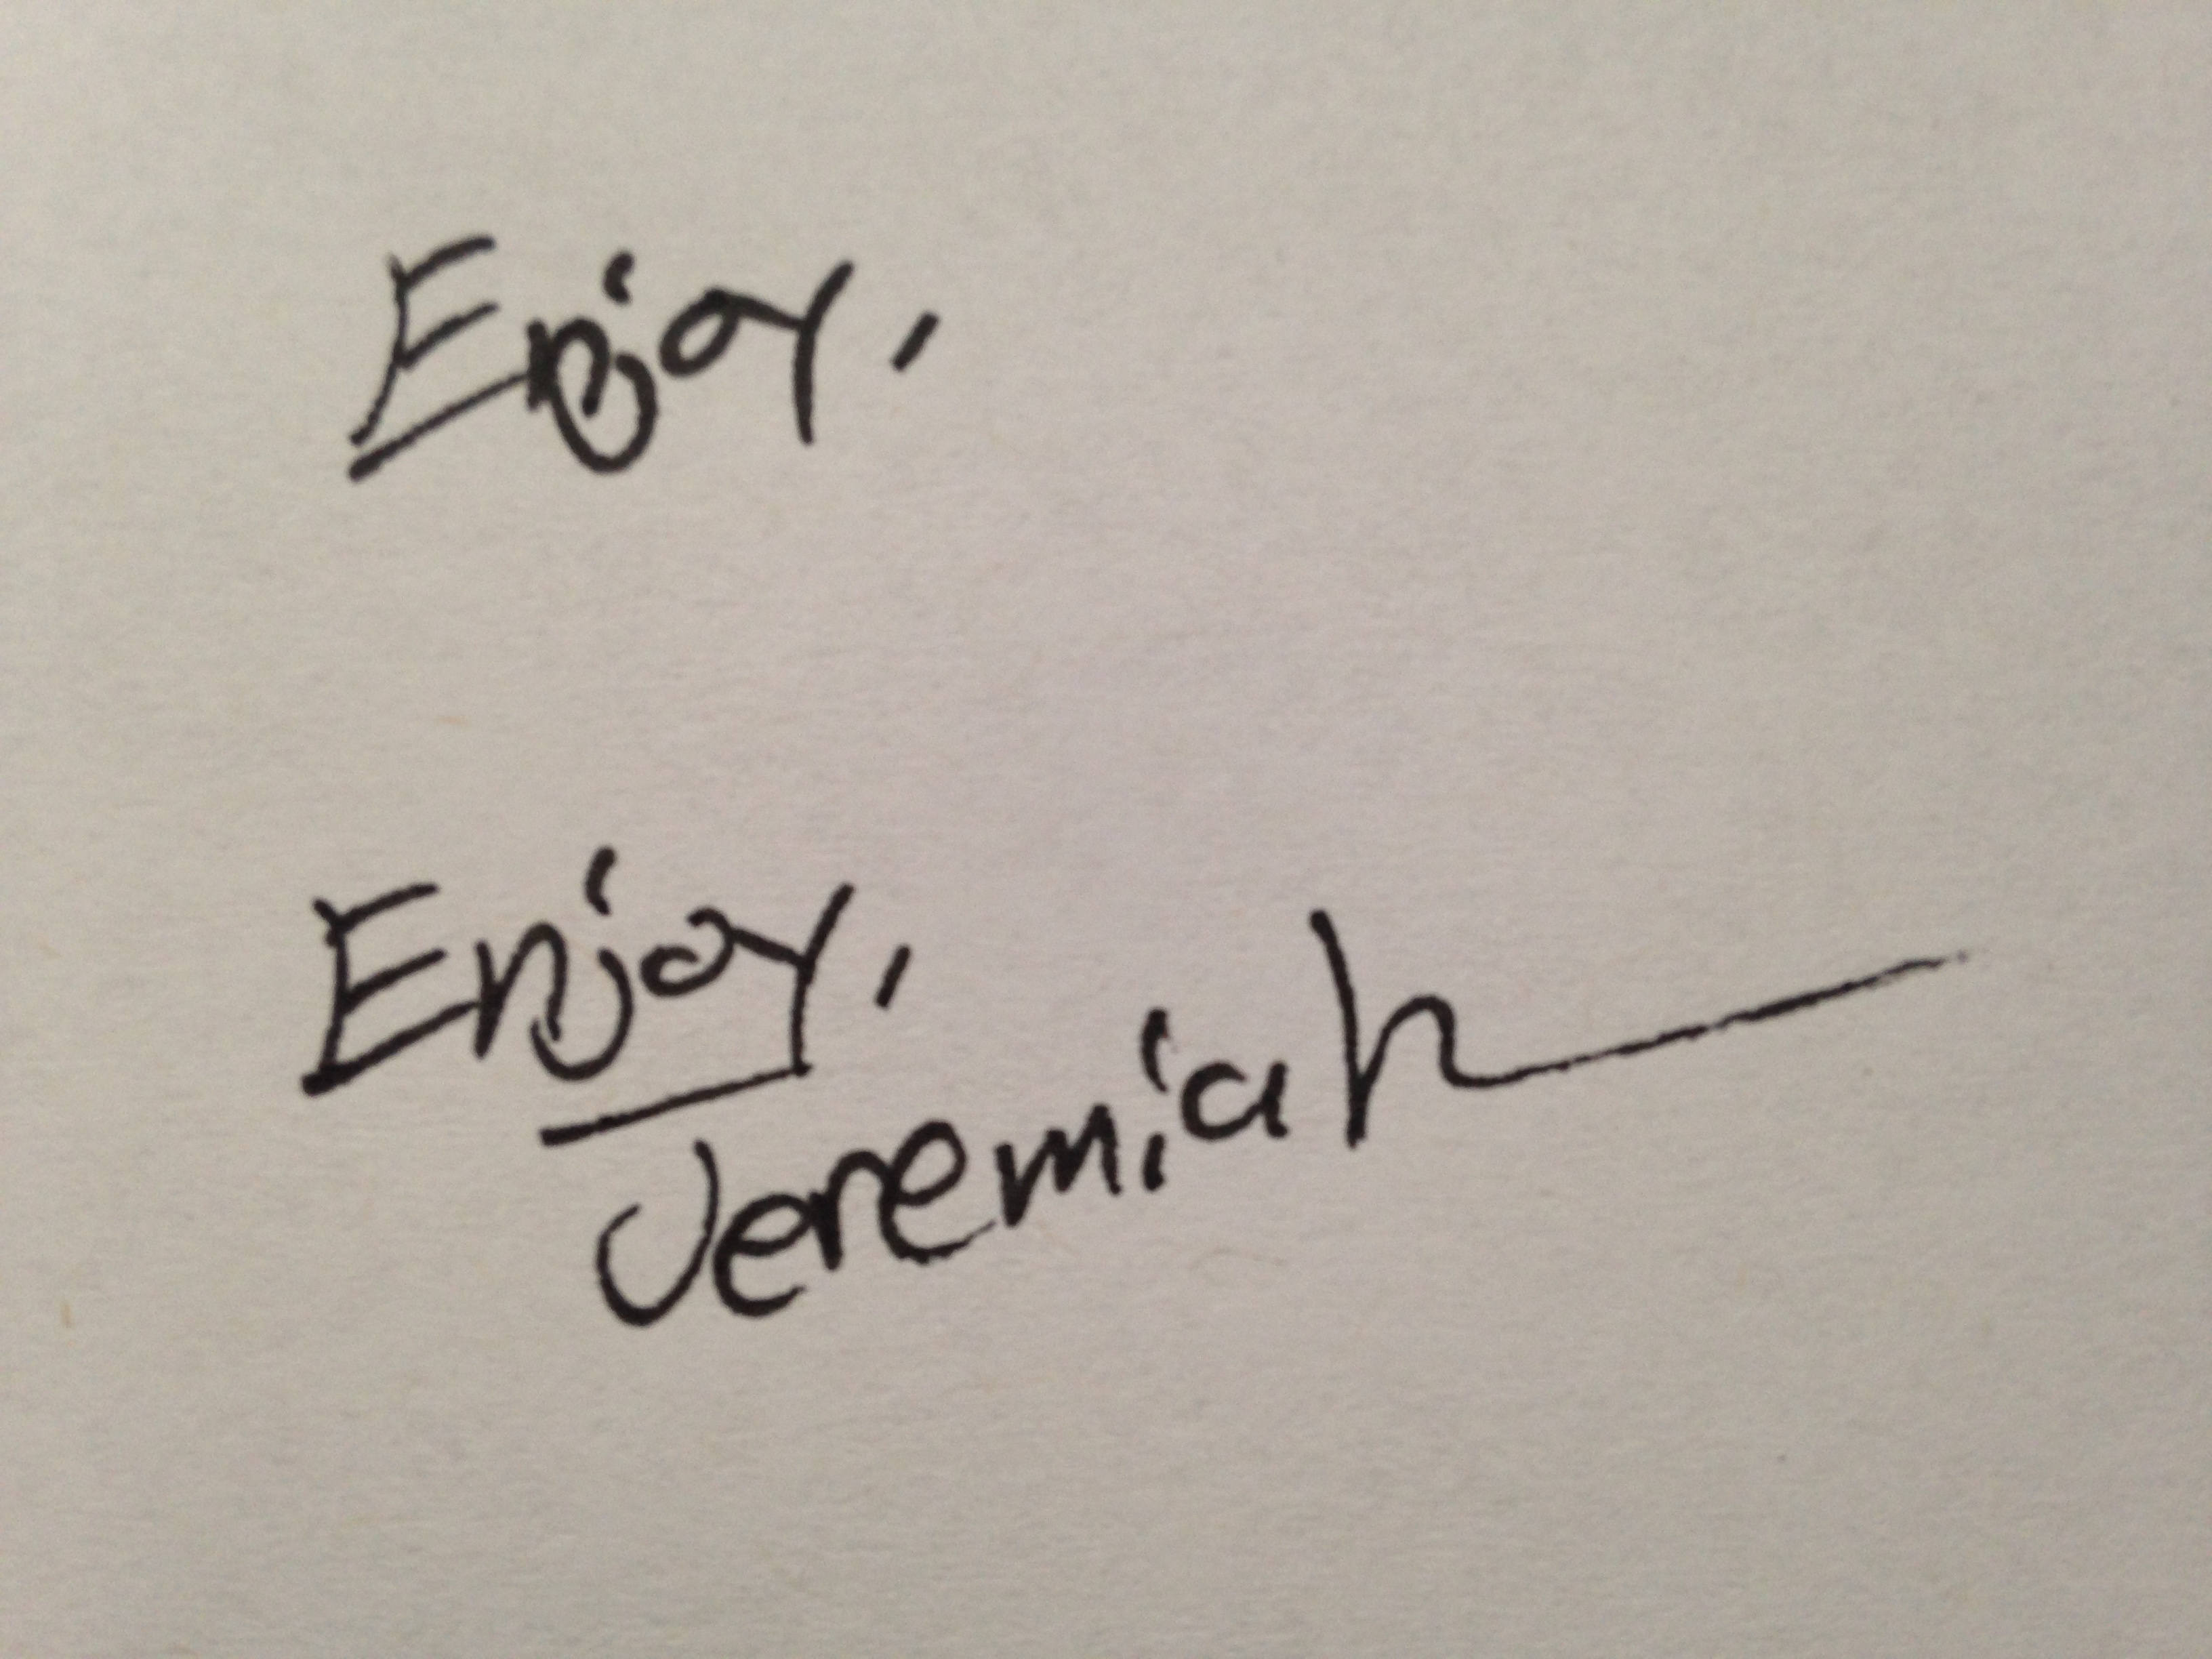 Enjoy,
Enjoy,
Jeremiah